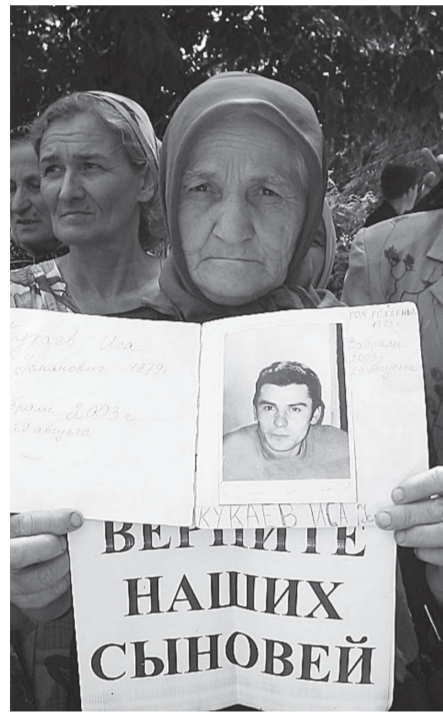 Кукаев Иса
1979г.
2003г
29 августа
ГОД РОЖДЕНЬЯ
1979г.
Забрали
2003г
29 августа
КУКАЕВ ИСА
ВЕРНИТЕ
НАШИХ
СЫНОВЕЙ